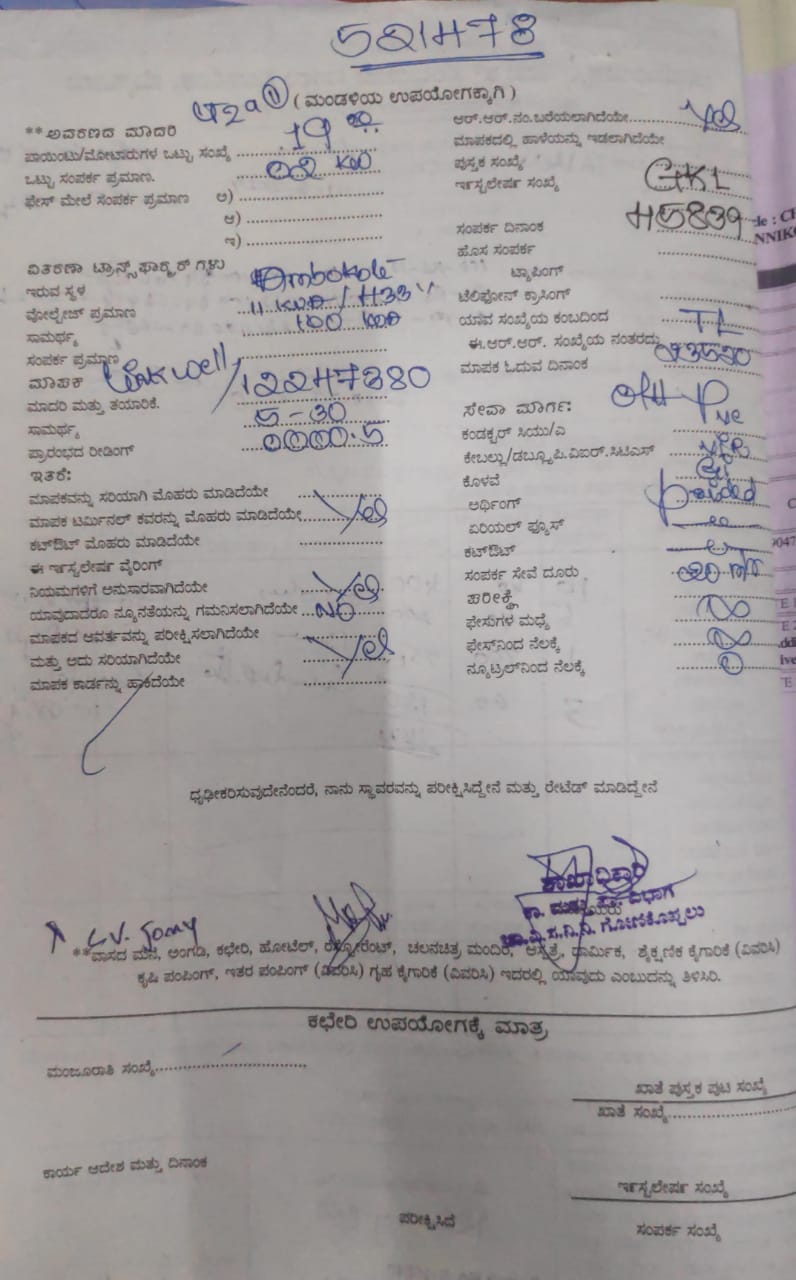 521478
LT2a① (ಮಂಡಳಿಯ ಉಪಯೋಗಕ್ಕಾಗಿ)
**ಆವರಣದ ಮಾದರಿ
ಪಾಯಿಂಟು/ಮೋಟಾರುಗಳ ಒಟ್ಟು ಸಂಖ್ಯೆ 19
ಒಟ್ಟು ಸಂಪರ್ಕ ಪ್ರಮಾಣ. 02 KW
ಫೇಸ್ ಮೇಲೆ ಸಂಪರ್ಕ ಪ್ರಮಾಣ ಅ)
ಆ)
ಇ)
ವಿತರಣಾ ಟ್ರಾನ್ಸ್‌ಫಾರ್ಮರ್ ಗಳು
ಇರುವ ಸ್ಥಳ Ambokole
ವೋಲ್ಟೇಜ್ ಪ್ರಮಾಣ
ಸಾಮರ್ಥ್ಯ 100 KVA
ಸಂಪರ್ಕ ಪ್ರಮಾಣ
ಮಾಪಕ
ಮಾದರಿ ಮತ್ತು ತಯಾರಿಕೆ. 12247380
ಸಾಮರ್ಥ್ಯ 5-30
ಪ್ರಾರಂಭದ ರೀಡಿಂಗ್ 0000.5
ಇತರೆ:
ಮಾಪಕವನ್ನು ಸರಿಯಾಗಿ ಮೊಹರು ಮಾಡಿದೆಯೇ
ಮಾಪಕ ಟರ್ಮಿನಲ್ ಕವರನ್ನು ಮೊಹರು ಮಾಡಿದೆಯೇ Yes
ಕಟ್‌ಔಟ್ ಮೊಹರು ಮಾಡಿದೆಯೇ
ಈ ಇನ್ಸ್ಟಲೇಷನ್ ವೈರಿಂಗ್
ನಿಯಮಗಳಿಗೆ ಅನುಸಾರವಾಗಿದೆಯೇ Yes
ಯಾವುದಾದರೂ ನ್ಯೂನತೆಯನ್ನು ಗಮನಿಸಲಾಗಿದೆಯೇ NO
ಮಾಪಕದ ಆವರ್ತವನ್ನು ಪರೀಕ್ಷಿಸಲಾಗಿದೆಯೇ
ಮತ್ತು ಅದು ಸರಿಯಾಗಿದೆಯೇ Yes
ಮಾಪಕ ಕಾರ್ಡನ್ನು ಹಾಕಿದೆಯೇ
ಆರ್.ಆರ್.ನಂ.ಬರೆಯಲಾಗಿದೆಯೇ Yes
ಮಾಪಕದಲ್ಲಿ ಹಾಳೆಯನ್ನು ಇಡಲಾಗಿದೆಯೇ
ಪುಸ್ತಕ ಸಂಖ್ಯೆ
ಇನ್ಸ್ಟಲೇಷನ್ ಸಂಖ್ಯೆ GKL
45839
ಸಂಪರ್ಕ ದಿನಾಂಕ
ಹೊಸ ಸಂಪರ್ಕ
ಟ್ಯಾಪಿಂಗ್
ಟೆಲಿಫೋನ್ ಕ್ರಾಸಿಂಗ್
ಯಾವ ಸಂಖ್ಯೆಯ ಕಂಬದಿಂದ TL
ಈ.ಆರ್.ಆರ್. ಸಂಖ್ಯೆಯ ನಂತರದ್ದು
ಮಾಪಕ ಓದುವ ದಿನಾಂಕ
ಸೇವಾ ಮಾರ್ಗ: O/H
ಕಂಡಕ್ಟರ್ ಸಿಯು/ಎ
ಕೇಬಲ್ಲು/ಡಬ್ಲ್ಯೂ.ಪಿ.ವಿಐಆರ್.ಸಿಟಿಎಸ್
ಕೊಳವೆ GI
ಅರ್ಥಿಂಗ್ braided
ಏರಿಯಲ್ ಫ್ಯೂಸ್
ಕಟ್‌ಔಟ್
ಸಂಪರ್ಕ ಸೇವೆ ದೂರು 20 mt
ಪರೀಕ್ಷೆ
ಫೇಸುಗಳ ಮಧ್ಯೆ ∞
ಫೇಸ್‌ನಿಂದ ನೆಲಕ್ಕೆ ∞
ನ್ಯೂಟ್ರಲ್‌ನಿಂದ ನೆಲಕ್ಕೆ 0
ಧೃಢೀಕರಿಸುವುದೇನೆಂದರೆ, ನಾನು ಸ್ಥಾವರವನ್ನು ಪರೀಕ್ಷಿಸಿದ್ದೇನೆ ಮತ್ತು ರೇಟೆಡ್ ಮಾಡಿದ್ದೇನೆ
ಶಾಖಾಧಿಕಾರಿ
ವಿಭಾಗ
ಗೋಣಿಕೊಪ್ಪಲು
**ವಾಸದ ಮನೆ, ಅಂಗಡಿ, ಕಛೇರಿ, ಹೋಟೆಲ್, ರೆಸ್ಟೋರೆಂಟ್, ಚಲನಚಿತ್ರ ಮಂದಿರ, ಆಸ್ಪತ್ರೆ, ಧಾರ್ಮಿಕ, ಶೈಕ್ಷಣಿಕ ಕೈಗಾರಿಕೆ (ವಿವರಿಸಿ)
ಕೃಷಿ ಪಂಪಿಂಗ್, ಇತರ ಪಂಪಿಂಗ್ (ವಿವರಿಸಿ) ಗೃಹ ಕೈಗಾರಿಕೆ (ವಿವರಿಸಿ) ಇದರಲ್ಲಿ ಯಾವುದು ಎಂಬುದನ್ನು ತಿಳಿಸಿರಿ.
ಕಛೇರಿ ಉಪಯೋಗಕ್ಕೆ ಮಾತ್ರ
ಮಂಜೂರಾತಿ ಸಂಖ್ಯೆ
ಖಾತೆ ಪುಸ್ತಕ ಪುಟ ಸಂಖ್ಯೆ
ಖಾತೆ ಸಂಖ್ಯೆ
ಕಾರ್ಯ ಆದೇಶ ಮತ್ತು ದಿನಾಂಕ
ಇನ್ಸ್ಟಲೇಷನ್ ಸಂಖ್ಯೆ
ಪರೀಕ್ಷಿಸಿದೆ
ಸಂಪರ್ಕ ಸಂಖ್ಯೆ